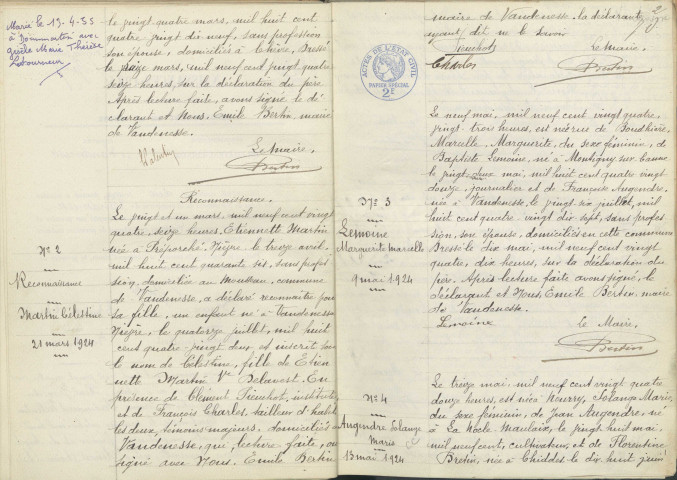 Marié le 19-4-55
à Dommartin avec
Gisèle Marie Thérèse
Letourneur
le vingt quatre mars, mil huit cent
quatre vingt dix neuf, sans profession
son épouse, domiciliés à Chèvre, Dressé
le seize mars, mil neuf cent vingt quatre
seize heures, sur la déclaration du père.
Après lecture faite, avons signé le dé
clarant et Nous, Emile Bertin, maire
de Vandenesse.
Le Maire,
Bertin
N° 2
Reconnaissance
Martin Célestine
21 mars 1924
Reconnaissance.
Le vingt et un mars, mil neuf cent vingt
quatre, seize heures, Etiennette Martin
née à Préporché, Nièvre le treize avril
mil huit cent quarante six, sans profes
sion, domiciliée au Mousseau, commune
de Vandenesse, a déclaré reconnaître pour
sa fille, un enfant né à Vandenesse
Nièvre, le quatorze juillet, mil huit
cent quatre-vingt deux et inscrit sous
le nom de Célestine, fille de Etien
nette Martin Vve Belavest. En
présence de Clément Pieuchot, instituteur
et de François Charles, tailleur d'habits
les deux, témoins majeurs, domiciliés
Vandenesse, qui, lecture faite, ont
signé avec Nous, Emile Bertin
maire de Vandenesse, la déclarante
ayant dit ne le savoir
Pieuchot
Le Maire,
Charles
Bertin
2
ACTES DE L'ÉTAT CIVIL
PAPIER SPÉCIAL
2F
N° 3
Lemoine
Marguerite Marcelle
9 mai 1924
Le neuf mai, mil neuf cent vingt quatre,
vingt trois heures, est née rue de Bouthière,
Marcelle Marguerite, du sexe féminin, de
Baptiste Lemoine, né à Montigny sur Canne
le vingt deux mai, mil huit cent quatre vingt
douze, journalier et de Françoise Augendre,
née à Vandenesse, le vingt six juillet, mil
huit cent quatre vingt dix sept, sans profes
sion, son épouse, domiciliés en cette commune
Dressé le dix mai, mil neuf cent vingt
quatre, dix heures, sur la déclaration du
père. Après lecture faite avons signé, le
déclarant et Nous, Emile Bertin, maire
de Vandenesse.
Lemoine
Le Maire,
Bertin
N° 4
Augendre Solange
Marie
13 mai 1924
Le treize mai, mil neuf cent vingt quatre
douze heures, est née à Nourry, Solange Marie,
du sexe féminin, de Jean Augendre, né
à La Nocle Maulaix, le vingt huit mai,
mil neuf cent, cultivateur, et de Florentine
Bretin, née à Chiddes le dix huit juin